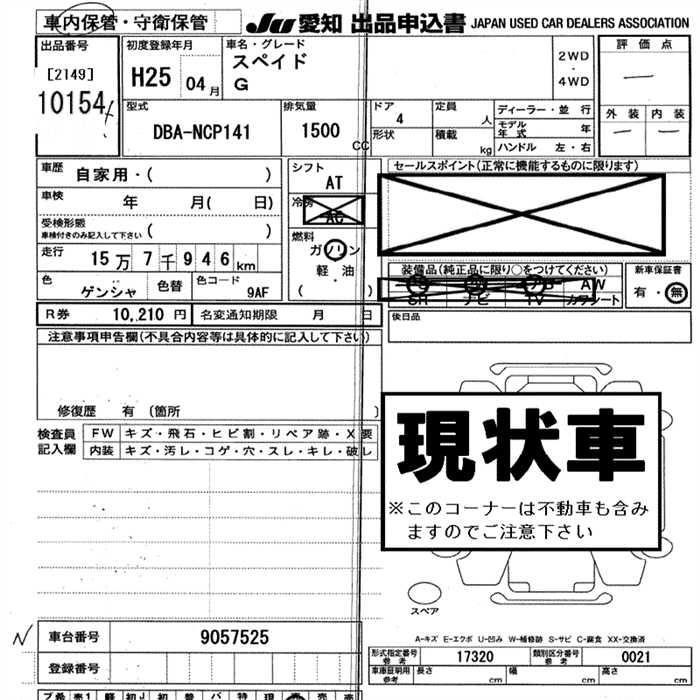 車内保管・守衛保管
JU 愛知 出品申込書 JAPAN USED CAR DEALERS ASSOCIATION
出品番号
[2149]
10154
初度登録年月
H25 04月
車名・グレード
スペイド
G
2WD
・
4WD
評価点
—
外装 内装
— —
型式
DBA-NCP141
排気量
1500
CC
ドア
4
形状
定員
人
積載
kg
ディーラー・並行
モデル年式 年
ハンドル 左・右
車歴
自家用・( )
車検
年 月( 日)
受検形態
車検付きのみ記入して下さい ( )
走行
15万7千946km
色
ゲンシャ
色替
色コード
9AF
シフト
AT
冷房
AC
燃料
ガソリン
軽・油
( )
セールスポイント(正常に機能するものに限ります)
装備品(純正品に限り○をつけてください)
AW
SR ナビ TV カワシート
新車保証書
有・無
後日品
R券 10,210円
名変通知期限 月 日
注意事項申告欄(不具合内容等は具体的に記入して下さい)
修復歴 有 (箇所 )
検査員記入欄
FW キズ・飛石・ヒビ割・リペア跡・X要
内装 キズ・汚レ・コゲ・穴・スレ・キレ・破レ
現状車
※このコーナーは不動車も含み
ますのでご注意下さい
スペア
A-キズ E-エクボ U-凹み W-補修跡 S-サビ C-腐食 XX-交換済
車台番号 9057525
登録番号
形式指定番号
参考
17320
類別区分番号
参考
0021
車庫証明用
参考
長さ cm 幅 cm 高さ cm